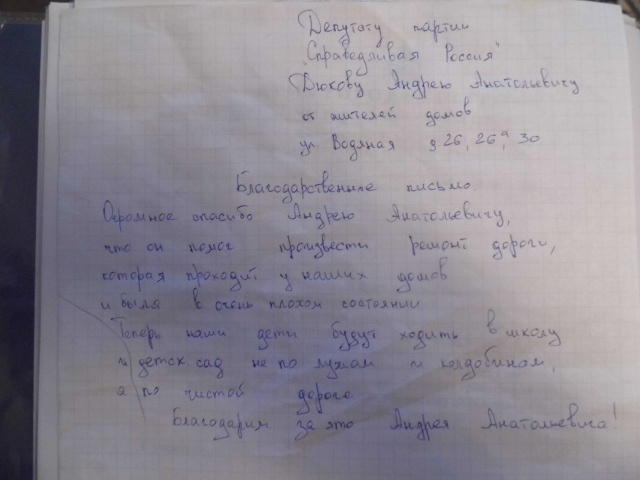 Депутату партии
"Справедливая Россия"
Дюкову Андрею Анатольевичу
от жителей домов
ул. Водяная д 26, 26а, 30
Благодарственное письмо.
Огромное спасибо Андрею Анатольевичу,
что он помог произвести ремонт дороги,
которая проходит у наших домов
и была в очень плохом состоянии
Теперь наши дети будут ходить в школу
и детск. сад не по лужам и колдобинам,
а по чистой дороге.
Благодарим за это Андрея Анатольевича!